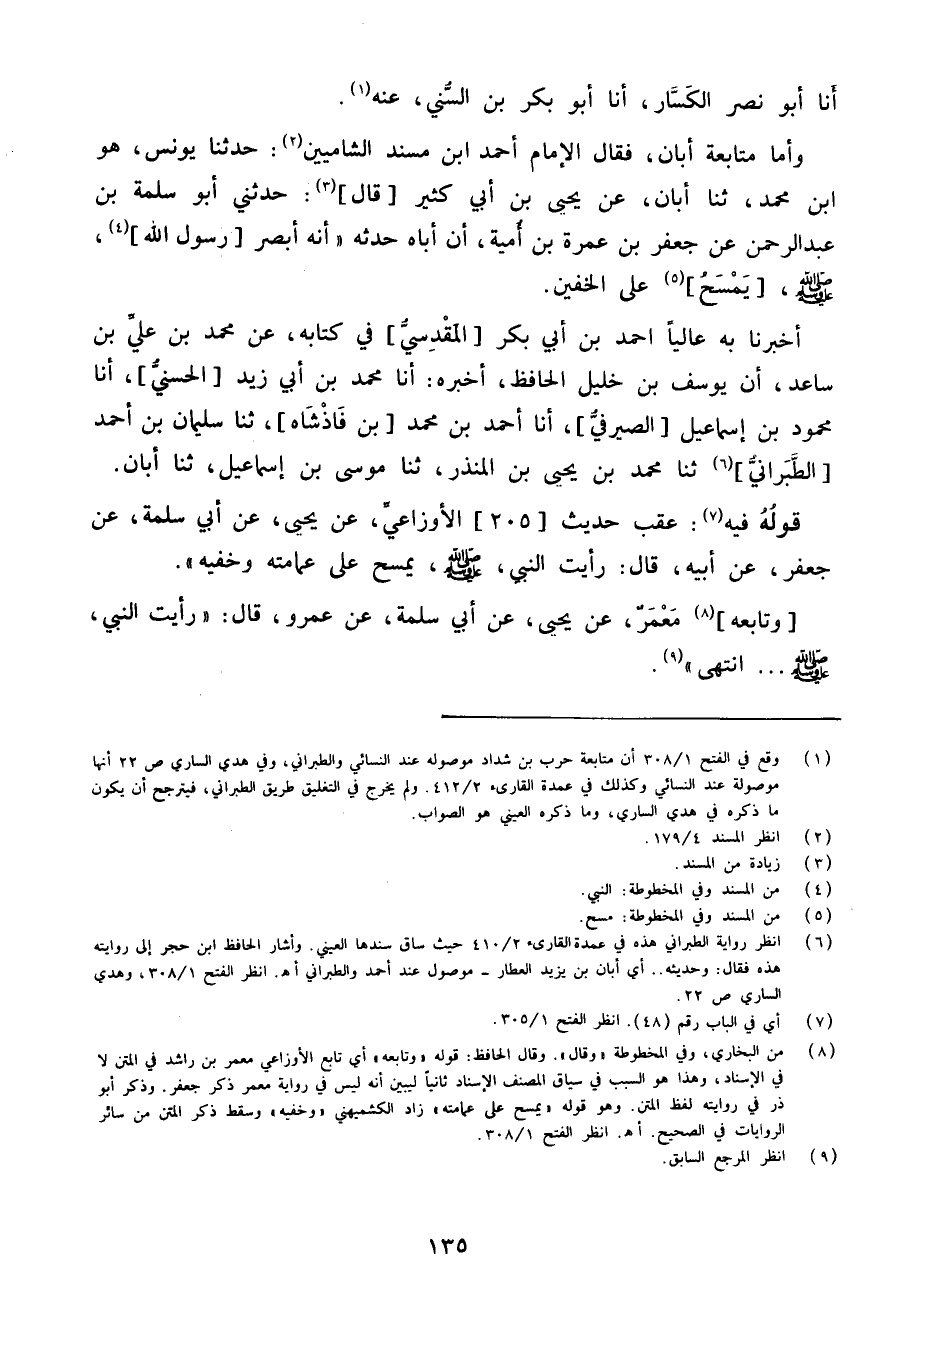 أنا أبو نصر الكَسَّار، أنا أبو بكر بن السُّني، عنه(١).
وأما متابعة أبان، فقال الإمام أحمد ابن مسند الشاميين(٢): حدثنا يونس، هو
ابن محمد، ثنا أبان، عن يحيى بن أبي كثير [قال](٣): حدثني أبو سلمة بن
عبدالرحمن عن جعفر بن عمرة بن أُمية، أن أباه حدثه «أنه أبصر [رسول الله](٤)،
ﷺ، [يَمْسَحُ](٥) على الخفين.
أخبرنا به عالياً احمد بن أبي بكر [المَقْدِسِيُّ] في كتابه، عن محمد بن عليِّ بن
ساعد، أن يوسف بن خليل الحافظ، أخبره: أنا محمد بن أبي زيد [الحسنيُّ]، أنا
محمود بن إسماعيل [الصيرفيُّ]، أنا أحمد بن محمد [بن فَاذْشَاه]، ثنا سليمان بن أحمد
[الطَّبَرانيُّ](٦) ثنا محمد بن يحيى بن المنذر، ثنا موسى بن إسماعيل، ثنا أبان.
قولُهُ فيه(٧): عقب حديث [٢٠٥] الأوزاعيِّ، عن يحيى، عن أبي سلمة، عن
جعفر، عن أبيه، قال: رأيت النبي، ﷺ، يمسح على عمامته وخفيه».
[وتابعه](٨) مَعْمَرٌ، عن يحيى، عن أبي سلمة، عن عمرو، قال: «رأيت النبي،
ﷺ ... انتهى»(٩).
(١) وقع في الفتح ٣٠٨/١ أن متابعة حرب بن شداد موصوله عند النسائي والطبراني، وفي هدي الساري ص ٢٢ أنها
موصولة عند النسائي وكذلك في عمدة القارىء ٤١٢/٢. ولم يخرج في التغليق طريق الطبراني، فيترجح أن يكون
ما ذكره في هدي الساري، وما ذكره العيني هو الصواب.
(٢) انظر المسند ١٧٩/٤.
(٣) زيادة من المسند.
(٤) من المسند وفي المخطوطة: النبي.
(٥) من المسند وفي المخطوطة: مسح.
(٦) انظر رواية الطبراني هذه في عمدة القارىء ٤١٠/٢ حيث ساق سندها العيني. وأشار الحافظ ابن حجر إلى روايته
هذه فقال: وحديثه.. أي أبان بن يزيد العطار - موصول عند أحمد والطبراني أ هـ. انظر الفتح ٣٠٨/١، وهدي
الساري ص ٢٢.
(٧) أي في الباب رقم (٤٨). انظر الفتح ٣٠٥/١.
(٨) من البخاري، وفي المخطوطة «وقال». وقال الحافظ: قوله «وتابعه» أي تابع الأوزاعي معمر بن راشد في المتن لا
في الإسناد، وهذا هو السبب في سياق المصنف الإسناد ثانياً ليبين أنه ليس في رواية معمر ذكر جعفر. وذكر أبو
ذر في روايته لفظ المتن. وهو قوله «يمسح على عمامته» زاد الكشميهني «وخفيه» وسقط ذكر المتن من سائر
الروايات في الصحيح. أ هـ. انظر الفتح ٣٠٨/١.
(٩) انظر المرجع السابق.
١٣٥